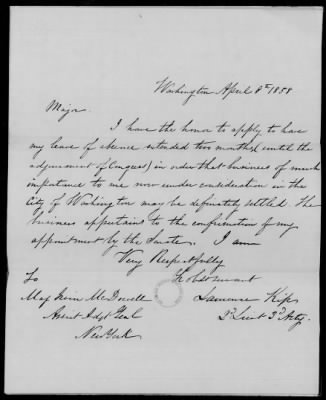 Washington April 8th 1858
Major
I have the honor to apply to have
my leave of absence extended two months (until the
adjournment of Congress) in order that business of much
importance to me now under consideration in the
City of Washington may be definately settled. The
business appertains to the confirmation of my
appointment by the Senate. I am
Very Respectfully
Yr Obdt Servant
Lawrence Kip
2d Lieut 3d Arty
To
Maj Irvin McDowell
Assist Adjt Genl
New York